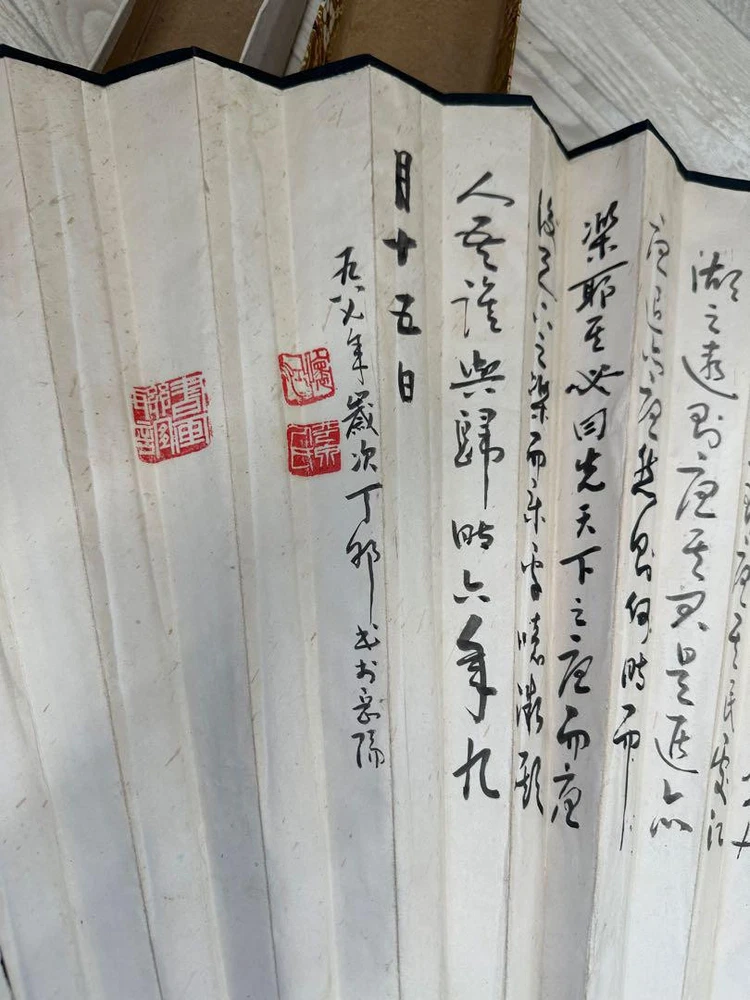 憂其民處江
湖之遠則憂其君是進亦
憂退亦憂然則何時而
樂耶其必曰先天下之憂而憂
後天下之樂而樂乎噫微斯
人吾誰與歸時六年九
月十五日
年歲次丁卯書於岳陽